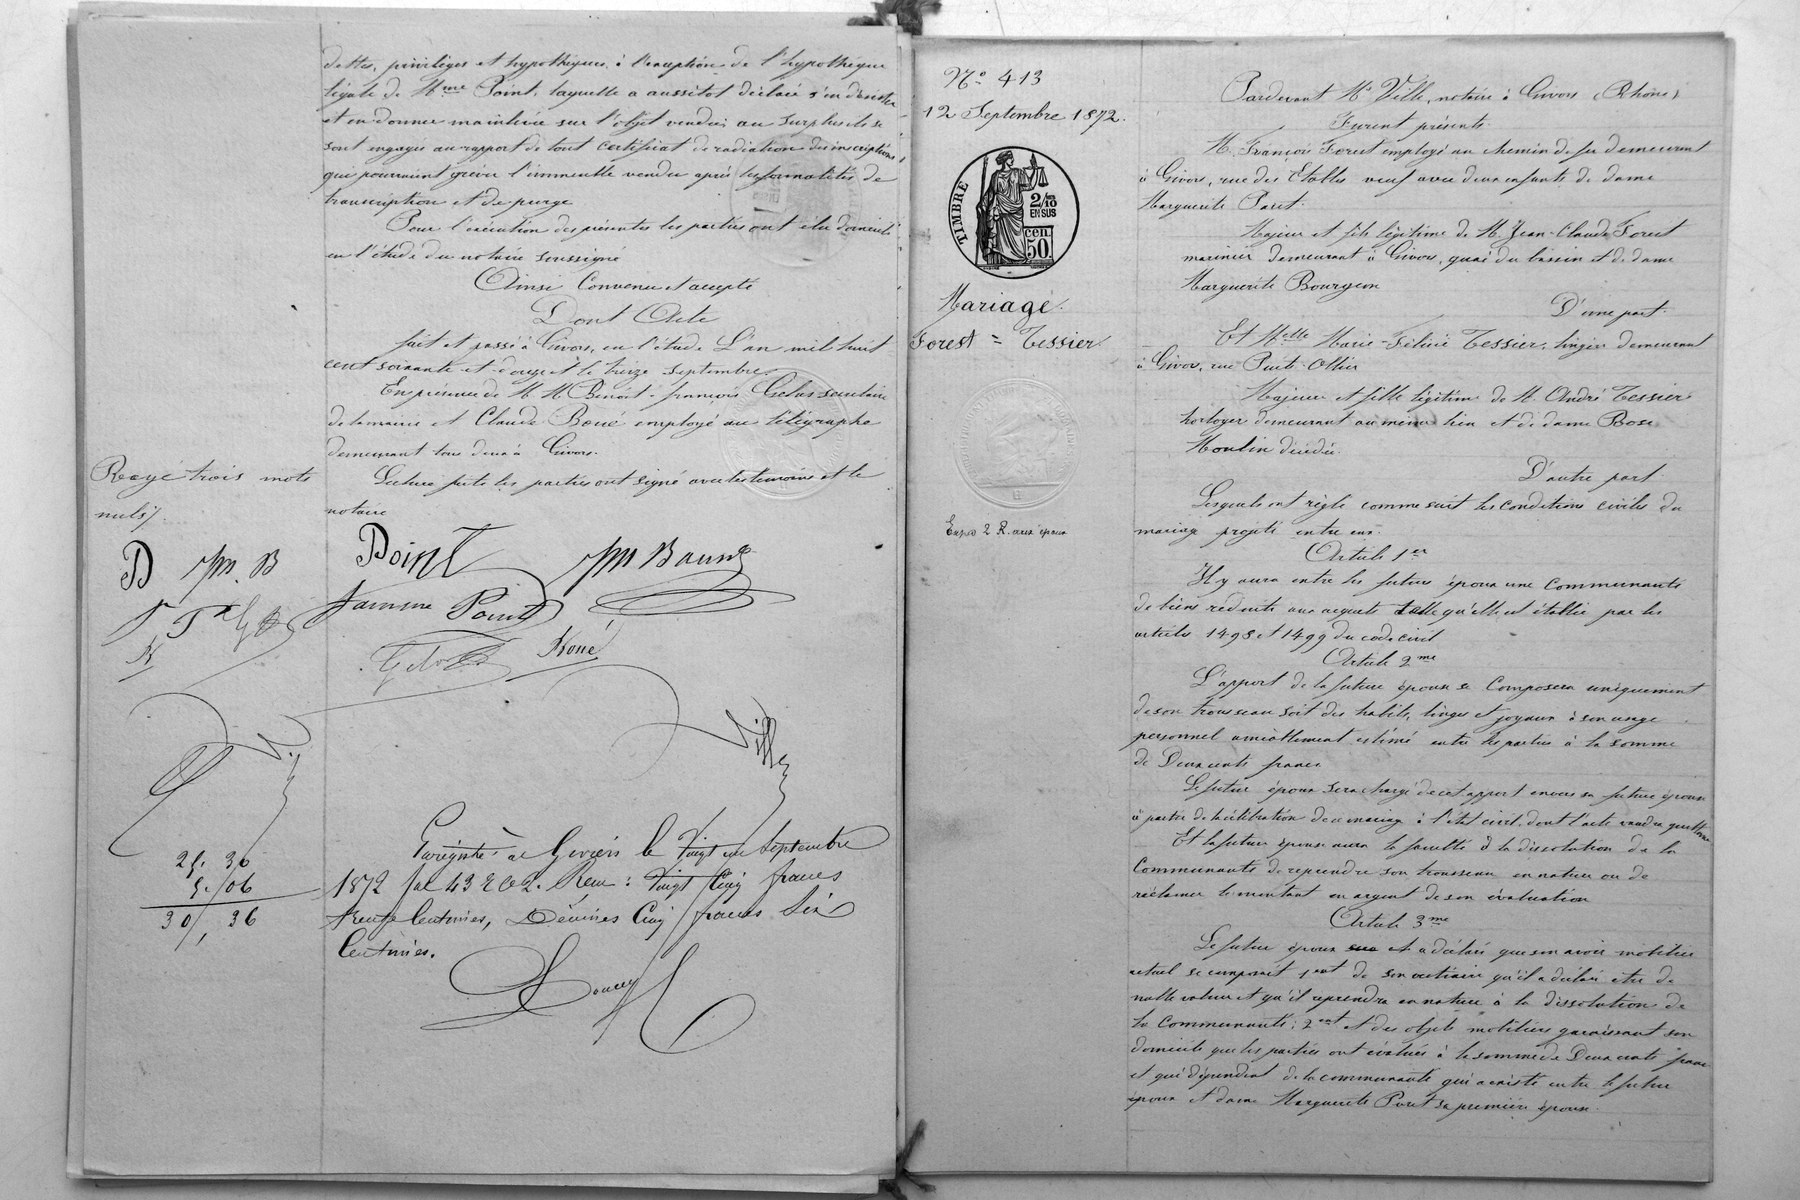 dettes, privilèges et hypothèques à l'exception de l'hypothèque
légale de Mme Point, laquelle a aussitot déclaré s'en désister
et en donner mainlevée sur l'objet vendu; au surplus ils se
sont engagés au rapport de tout certificat de radiation des inscriptions
qui pourraient grever l'immeuble vendu après les formalités de
transcription et de purge
Pour l'exécution des présentes les parties ont élu domicile
en l'étude du notaire soussigné
Ainsi Convenu et accepté
Dont Acte
fait et passé à Givors, en l'étude L'an mil huit
cent soixante et douze et le treize septembre
En présence de M.M. Benoit-françois Gelas secrétaire
de la mairie et Claude employé au télégraphe
demeurant tous deux à Givors.
Lecture faite les parties ont signé avec les témoins et le
notaire
Rayé trois mots
nuls
P M. B
Point
Jammme Point
Ville
Enregistré à Givors le Vingt un Septembre
1872 fol 43 Reçu: Vingt Cinq francs
trente Centimes, Décimes Cinq francs Six
Centimes.
25. 30
5. 06
30, 36
N° 413
12 Septembre 1872.
TIMBRE
2/10
EN SUS
50 cen.
Mariage
Forest = Tessier
Expéd 2 R. aux époux
Pardevant Me Ville, notaire à Givors (Rhône)
Furent présents
M. François Forest employé au chemin de fer demeurant
à Givors, rue des Etables veuf avec deux enfants de dame
Marguerite Paret.
Majeur et fils légitime de M. Jean-Claude Forest
marinier demeurant à Givors, quai du bassin et de dame
Marguerite Bourgeon
D'une part.
Et Melle Marie-Félicie Tessier, lingère demeurant
à Givors, rue Puits-Ollier
Majeure et fille légitime de M. André Tessier
horloger demeurant au même lieu et de dame Rose
Moulin décédée.
D'autre part.
Lesquels ont réglé comme suit les conditions civiles du
mariage projeté entre eux.
Article 1er
Il y aura entre les futurs époux une Communauté
de biens réduite aux acquets telle qu'elle est établie par les
articles 1498 et 1499 du code civil
Article 2me
L'apport de la future épouse se Composera uniquement
de son trousseau soit des habits, linges et joyaux à son usage
personnel amiablement estimé entre les parties à la somme
de Deux cents francs
Le futur époux sera chargé de cet apport envers sa future épouse
à partir de la célébration de ce mariage à l'état civil, dont l'acte vaudra quittance
Et la future épouse aura la faculté à la dissolution de la
Communauté de reprendre son trousseau en nature ou de
réclamer le montant en argent de son évaluation
Article 3me
Le futur époux et a déclaré que son avoir mobilier
actuel se composait 1ent de son vestiaire qu'il a déclaré être de
nulle valeur et qu'il reprendra en nature à la dissolution de
la Communauté; 2ent et des objets mobiliers garnissant son
domicile que les parties ont évalués à la somme de Deux cents francs
et qui dépendent de la communauté qui a existé entre le futur
époux et dame Marguerite Paret sa première épouse.